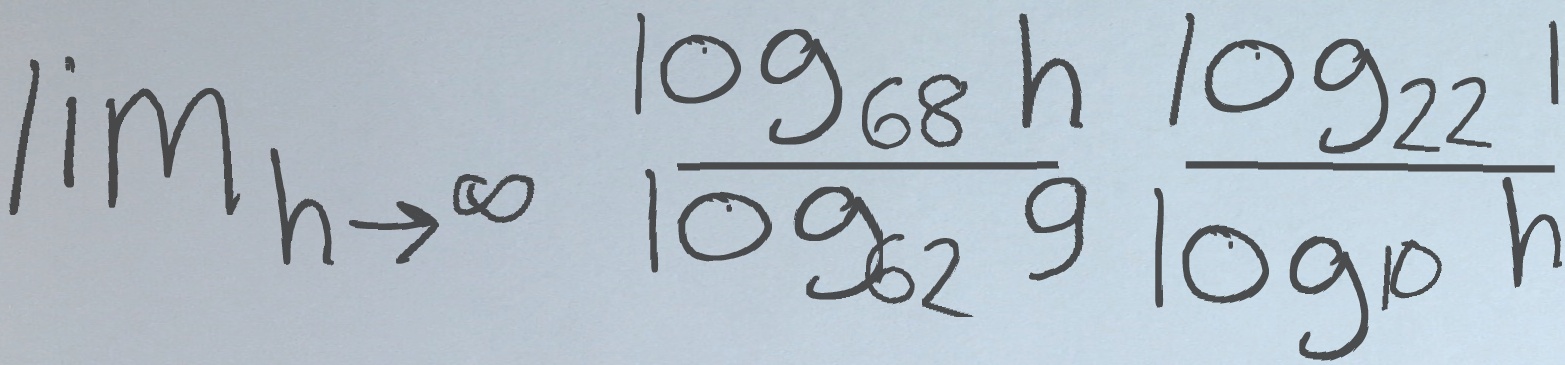 \lim_{h \to \infty} \frac{\log_{68} h}{\log_{62} 9} \frac{\log_{22} 1}{\log_{10} h}